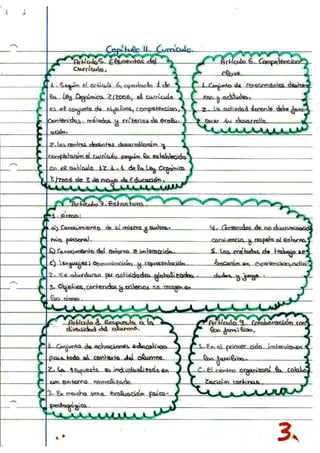 Capítulo II. Currículo.
Artículo 5. Elementos del
Currículo.
1. Según el artículo 6, apartado 1 de
la Ley Orgánica 2/2006, el currículo
es el conjunto de objetivos, competencias,
contenidos, métodos y criterios de evalu-
ación.
2. Los centros docentes desarrollarán y
completarán el currículo según lo establecido
en el artículo de la Ley Orgánica
2/2006 de 3 de mayo de Educación.
Artículo 6. Competencias
Clave.
1. Conjunto de conocimientos,
y actitudes.
2. La actividad docente debe
su desarrollo.
Artículo 7. Estructura
1. Áreas:
a) Conocimiento de sí mismo y autono-
mía personal.
b) Conocimiento del entorno e interacción.
c) Lenguajes: comunicación y representación.
2. Se abordarán por actividades globalizadas.
3. Objetivos, contenidos y criterios se recogen en
4. Contenidos de no discriminación
convivencia, y respeto al entorno.
5. Los métodos de trabajo se
en experiencias,
y juego.
Artículo 8. Respuesta a la
diversidad del alumno.
1. Conjunto de actuaciones educativas
para todo el contexto del alumno.
2. La respuesta es individualizada en
un entorno normalizado.
3. Es mucha una evaluación psico-
pedagógica.
Artículo 9. Colaboración con
las familias.
1. En el primer ciclo intervienen
las familias.
2. El centro organizará la
continua.
3.